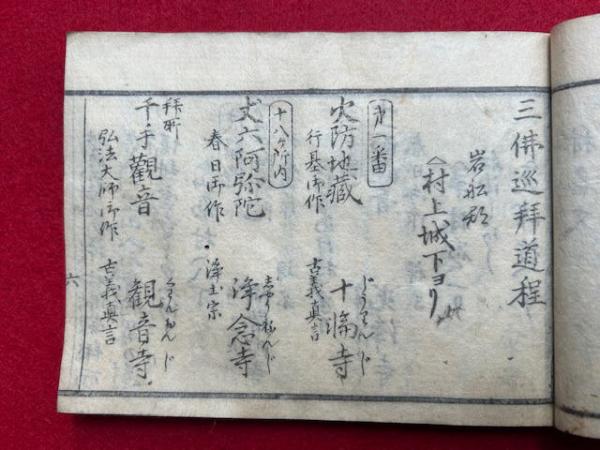 三佛巡拜道程
岩船郡
村上城下ヨリ
第一番
火防地藏
行基御作
古義真言
十輪寺
十八ヶ所内
丈六阿弥陀
春日御作
浄土宗
浄念寺
拜所
千手觀音
弘法大師御作
古義真言
観音寺
くわんおんじ
六